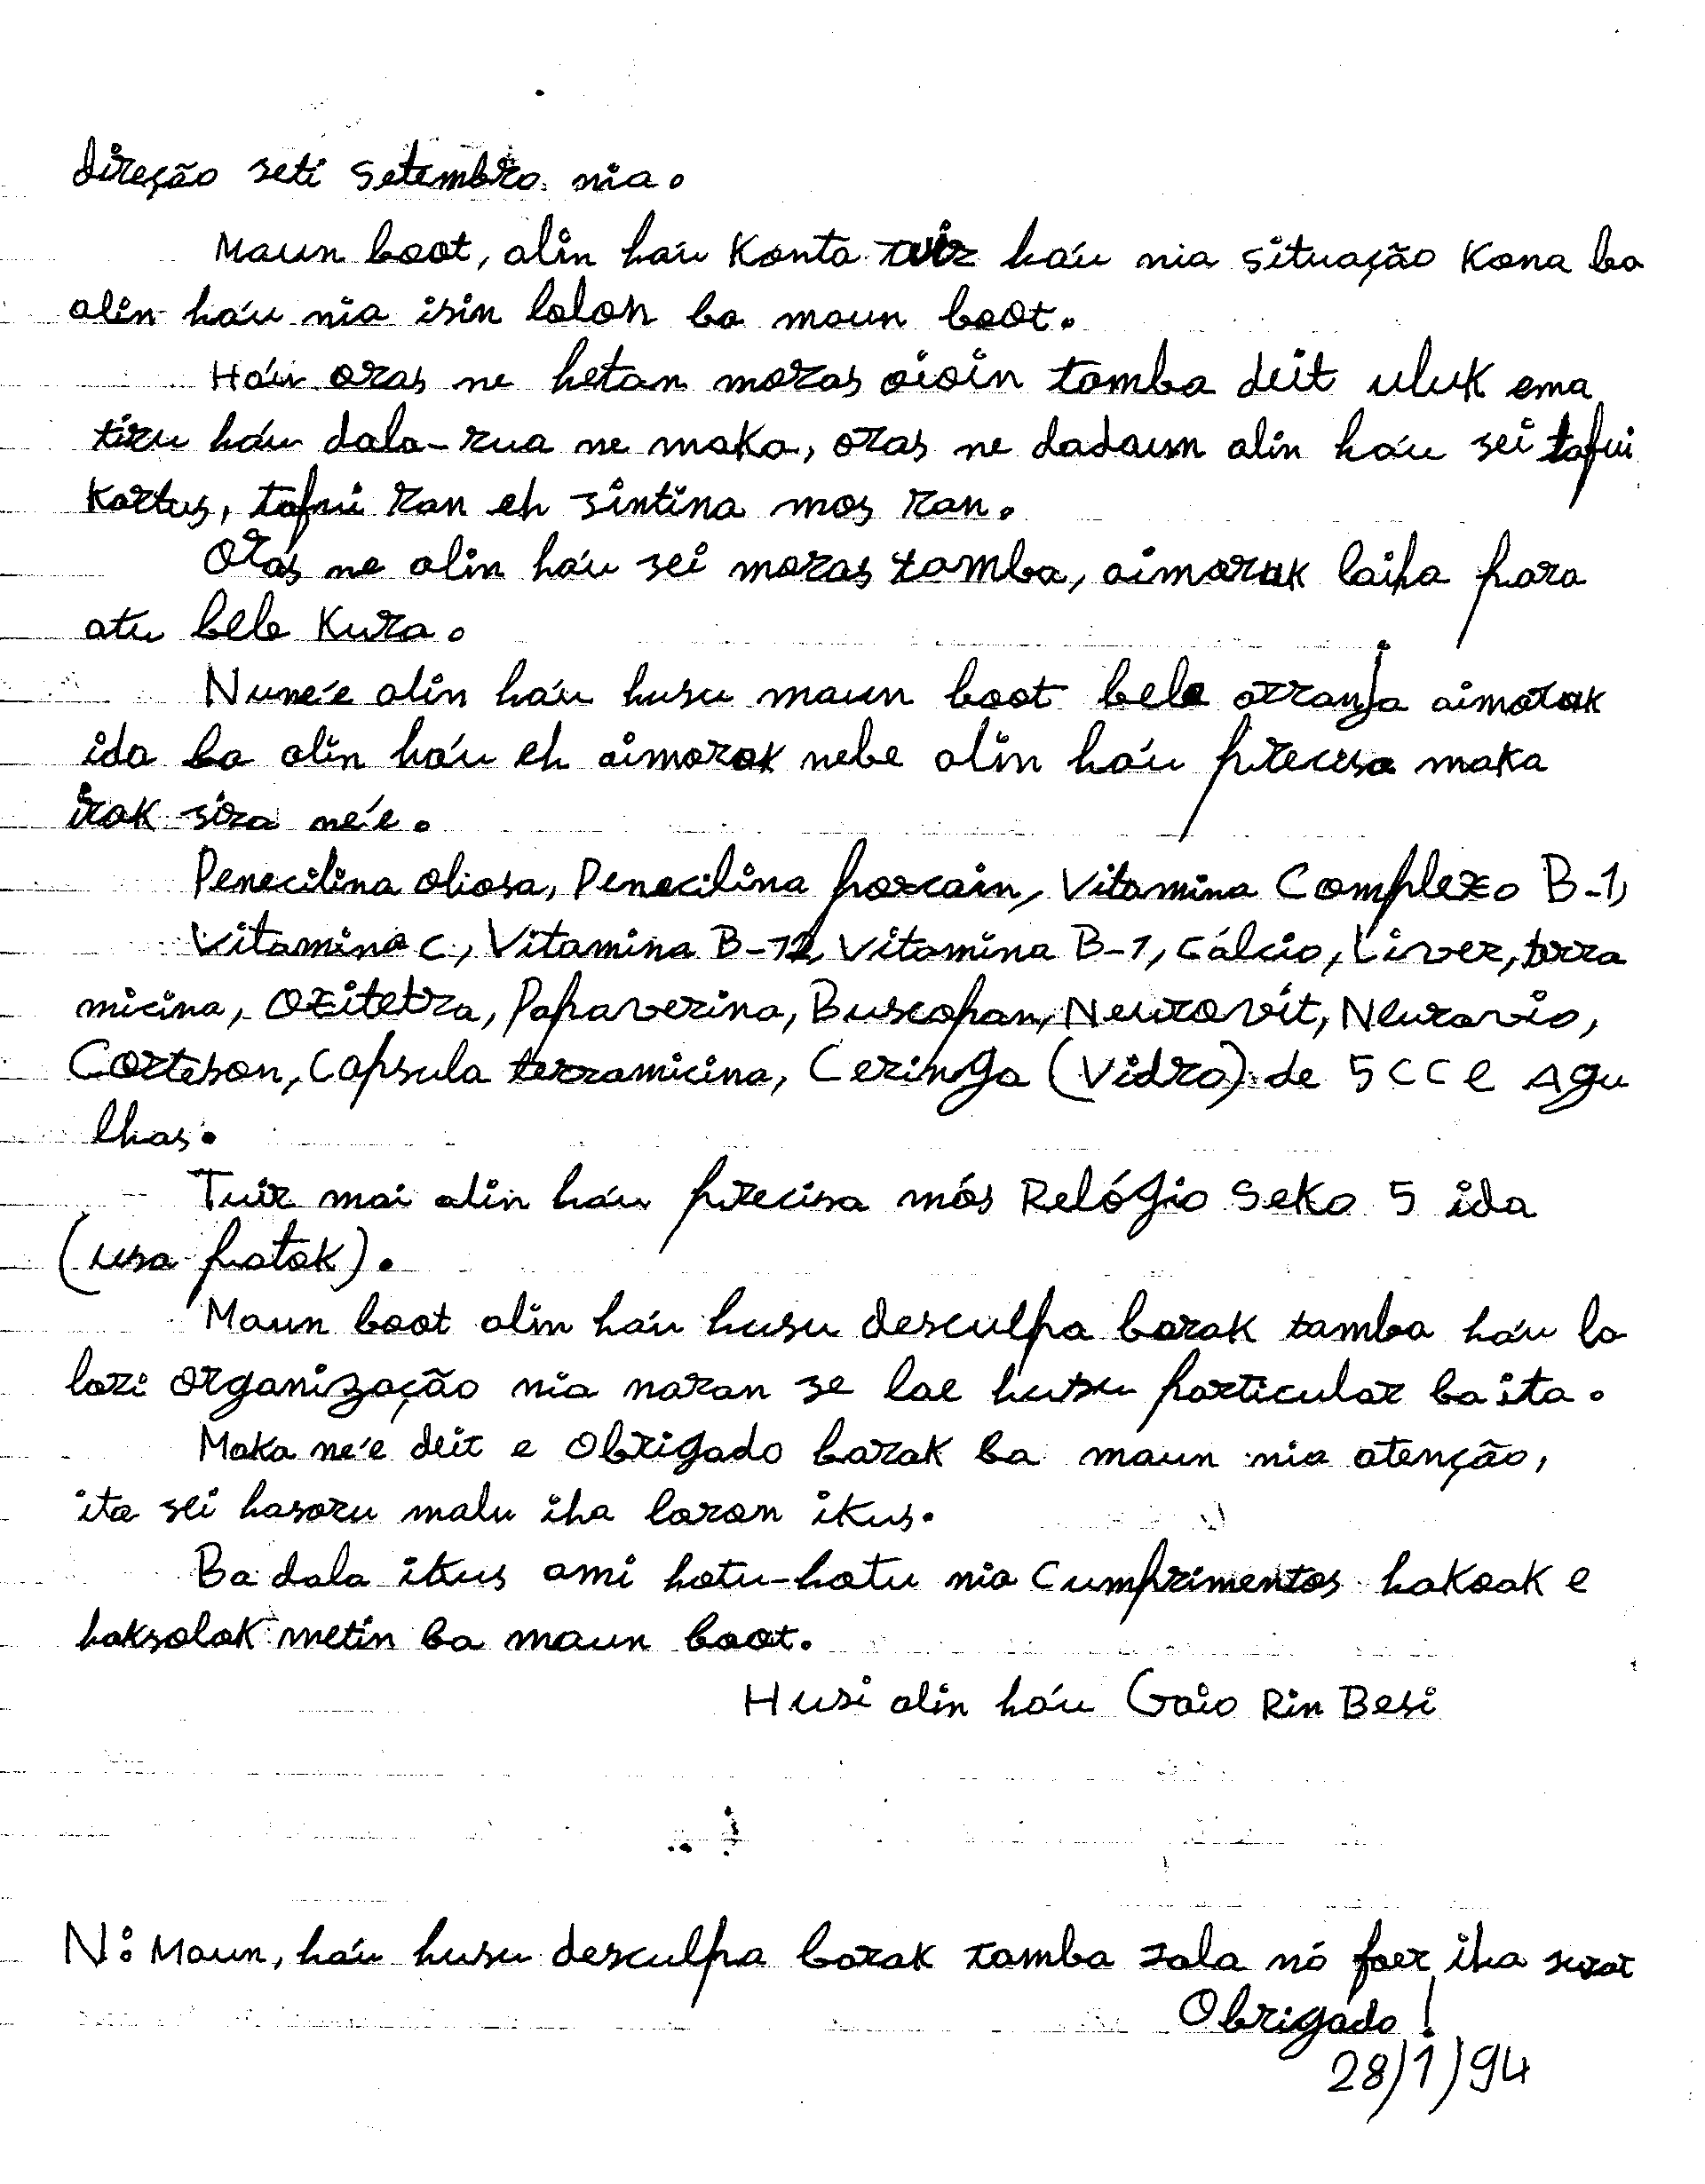 direção seti Setembro nia.
Maun boot, alin háu Konta tuir háu nia situação Kona ba
alin háu nia isin lolon ba maun boot.
Háu oras ne hetan moras oioin tamba deit uluk ema
tiru háu dala-rua ne maka, oras ne dadaun alin háu sei tafui
Kortus, tafui ran eh sintina mos ran.
Oras ne alin háu sei moras tamba, aimoruk laiha para
atu bele Kura.
Nune'e alin háu husu maun boot bele arranja aimoruk
ida ba alin háu eh aimoruk nebe alin háu precisa maka
irak sira ne'e.
Penecilina oliosa, Penecilina porcain, Vitamina Complexo B-1,
Vitamina C, Vitamina B-12, Vitamina B-1, Cálcio, Liver, terra
micina, Oxitetra, Papaverina, Buscopan, Neurovit, Neurovio,
Corteson, Capsula terramicina, Ceringa (Vidro) de 5 CC e Agu
lhas.
Tuir mai alin háu precisa mós Relógio Seko 5 ida
(usa patak).
Maun boot alin háu husu desculpa barak tamba háu la
lori organização nia naran se lae husu particular ba ita.
Maka ne'e deit e Obrigado barak ba maun nia atenção,
ita sei hasoru malu iha loron ikus.
Ba dala ikus ami hotu-hotu nia Cumprimentos hakoak e
haksolok metin ba maun boot.
Husi alin háu Gaio Rin Besi
N: Maun, háu husu desculpa barak tamba sala nó foer iha surat
Obrigado!
28/1/94